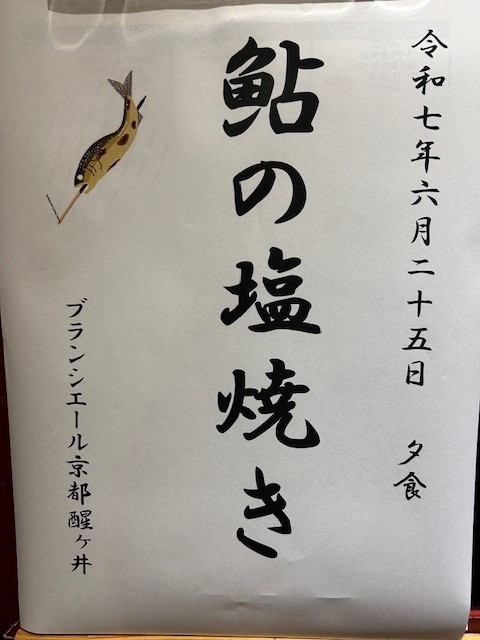 令和七年六月二十五日 夕食
鮎の塩焼き
ブランシエール京都醒ヶ井